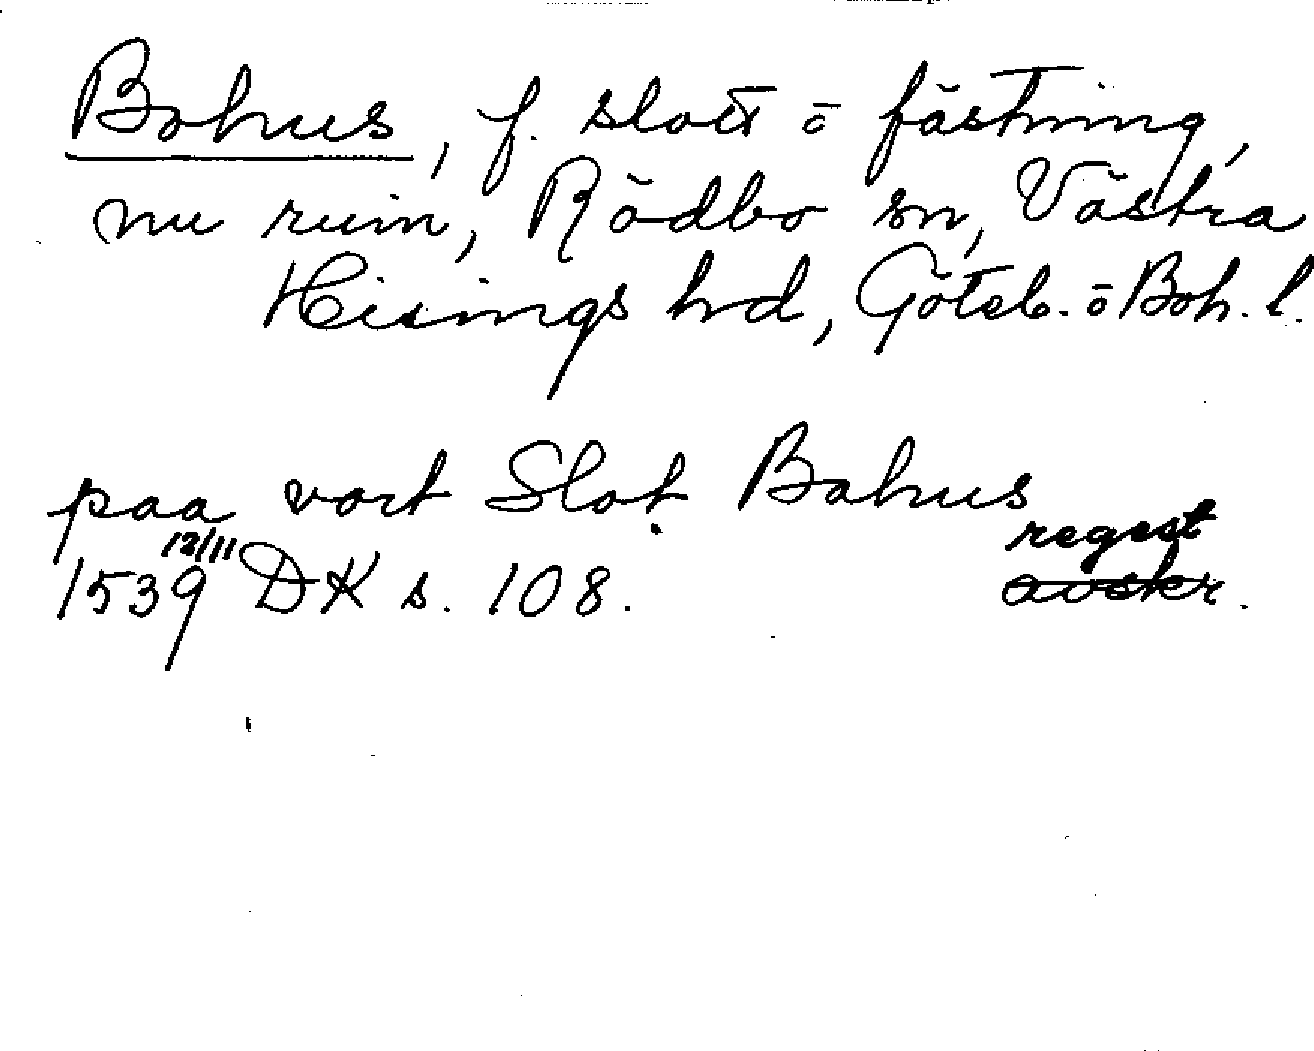 Bohus, f. slott ō fästning,
nu ruin, Rödbo sn, Västra
Hisings hd, Göteb. ō Boh. l.
paa vort Slot Bahus
regest
1539 12/11 DK s. 108. avskr.